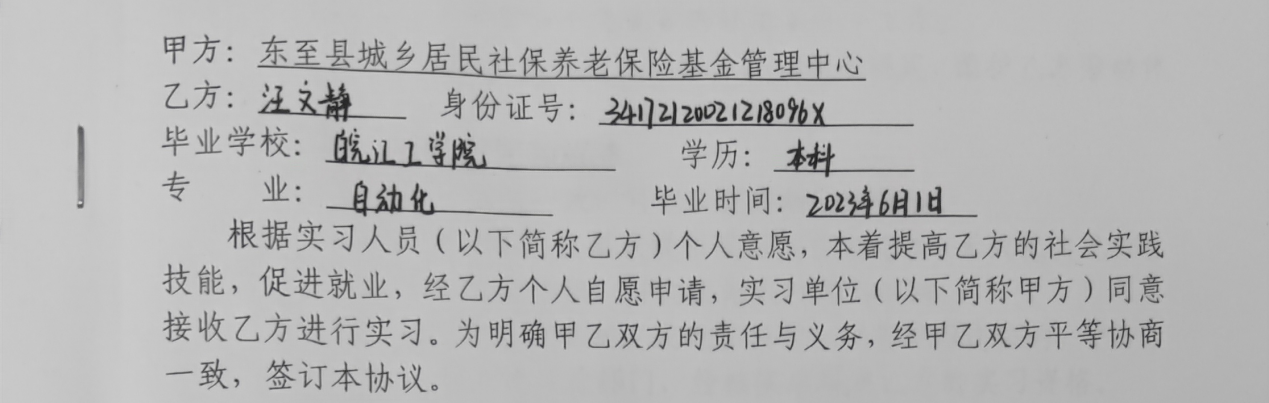 甲方：东至县城乡居民社保养老保险基金管理中心
乙方：汪文静 身份证号：34172120021218096X
毕业学校：皖江工学院 学历：本科
专 业：自动化 毕业时间：2023年6月1日
根据实习人员（以下简称乙方）个人意愿，本着提高乙方的社会实践
技能，促进就业，经乙方个人自愿申请，实习单位（以下简称甲方）同意
接收乙方进行实习。为明确甲乙双方的责任与义务，经甲乙双方平等协商
一致，签订本协议。